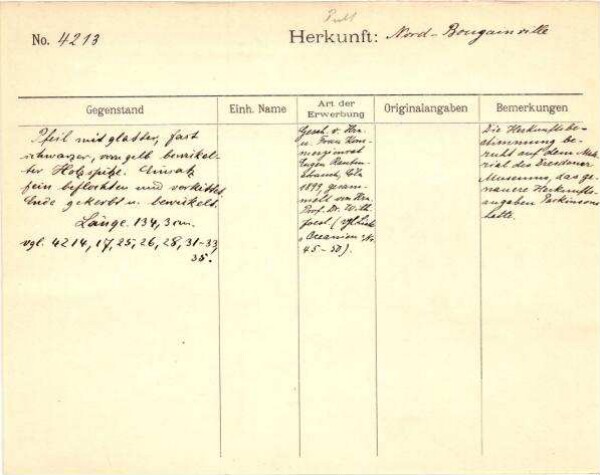 No. 4213
Herkunft: Nord-Bougainville
Gegenstand
Einh. Name
Art der
Erwerbung
Originalangaben
Bemerkungen
Pfeil mit glatter, fast
schwarzer, vorn gelb bewickel-
ter Holzspitze. Einsatz
fein beflochten und verkittet
Ende gekerbt u. bewickelt.
Länge. 134,3 cm.
vgl. 4214, 17, 25, 26, 28, 31-33,
35.
Gesch. v. Hrn.
u. Frau Kom-
merzienrat
Eugen Rauten-
strauch, Cöln
1899, gesam-
melt von Hrn.
Prof. Dr. Wilh.
Joest (vgl.
Oceanien No.
45-50).
Die Herkunftsbe-
stimmung be-
ruht auf dem Mate-
rial des Dresdener
Museums, das ge-
nauere Herkunfts-
angaben Parkinsons
hatte.